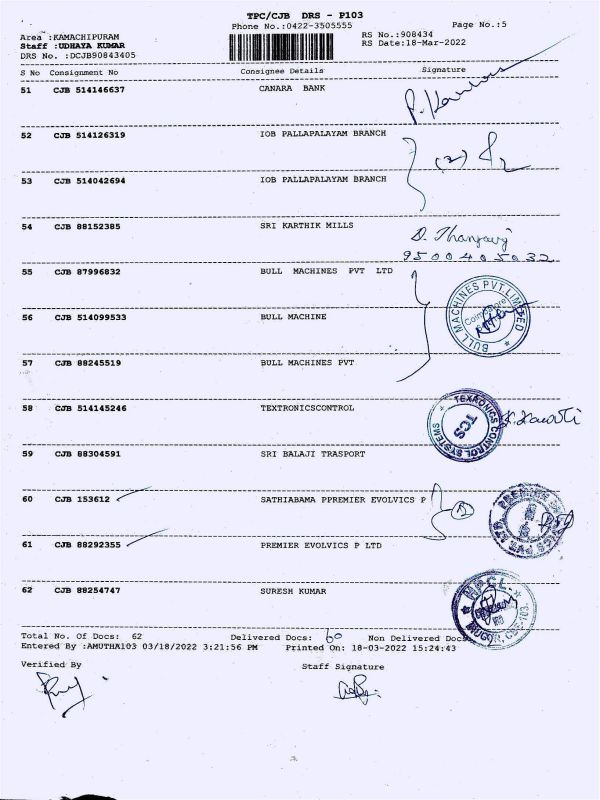 TPC/CJB DRS - P103
Phone No.:0422-3505555 Page No.:5
Area :KAMACHIPURAM RS No.:908434
Staff :UDHAYA KUMAR RS Date:18-Mar-2022
DRS No. :DCJB90843405
S No Consignment No Consignee Details Signature
51 CJB 514146637 CANARA BANK
52 CJB 514126319 IOB PALLAPALAYAM BRANCH
(2)
53 CJB 514042694 IOB PALLAPALAYAM BRANCH
54 CJB 88152385 SRI KARTHIK MILLS
9500405032
55 CJB 87996832 BULL MACHINES PVT LTD
BULL MACHINES PVT. LIMITED
Coimbatore
56 CJB 514099533 BULL MACHINE
57 CJB 88245519 BULL MACHINES PVT
58 CJB 514145246 TEXTRONICSCONTROL
TEXRONICS CONTROL SYSTEMS
TCS
59 CJB 88304591 SRI BALAJI TRASPORT
60 CJB 153612 SATHIABAMA PPREMIER EVOLVICS P
61 CJB 88292355 PREMIER EVOLVICS P LTD
62 CJB 88254747 SURESH KUMAR
Total No. Of Docs: 62 Delivered Docs: 60 Non Delivered Docs
Entered By :AMUTHA103 03/18/2022 3:21:56 PM Printed On: 18-03-2022 15:24:43
Verified By Staff Signature